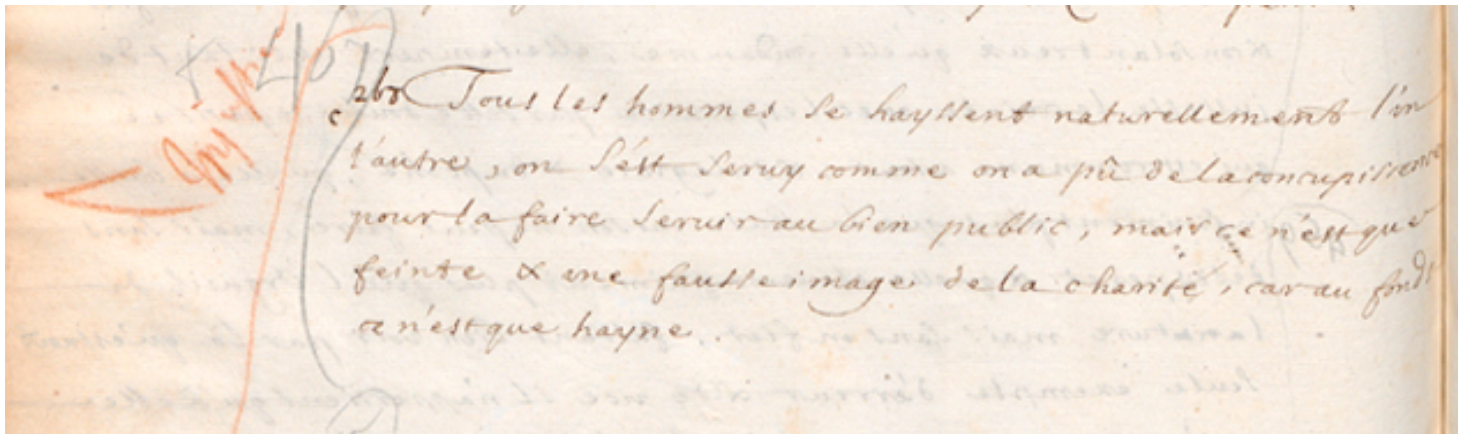 Tous les hommes se hayssent naturellement l'un
l'autre, on s'est seruy comme on a pû de la concupiscence
pour la faire seruir au bien public, mais ce n'est que
feinte & une fausse image de la charité, car au fond
ce n'est que hayne.